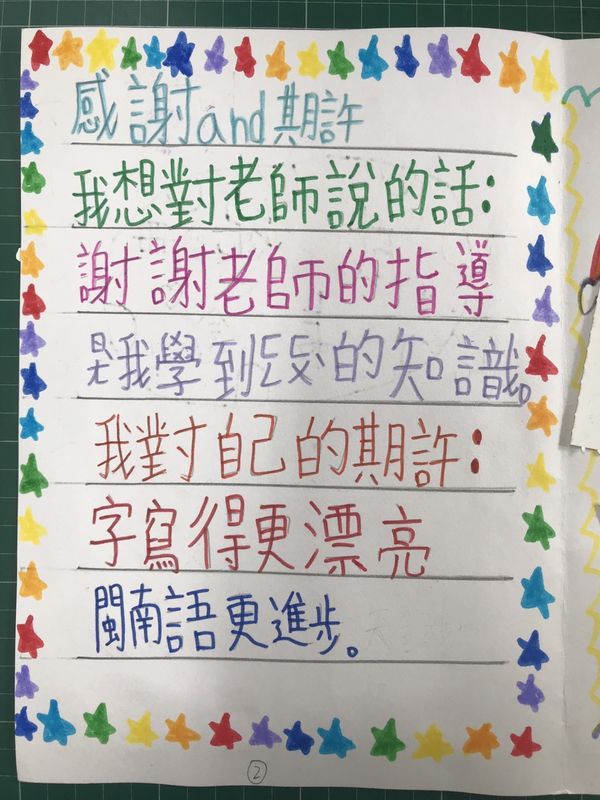 感謝and期許
我想對老師說的話:
謝謝老師的指導
ㄖㄤˋ我學到ㄈㄥㄈㄨˋ的知識。
我對自己的期許:
字寫得更漂亮
閩南語更進步。
2